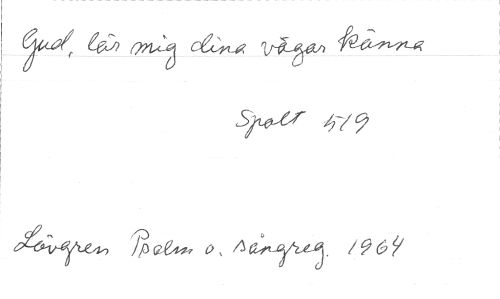 Gud, lär mig dina vägar känna
Spalt 519
Lövgren Psalm o. sångreg. 1964